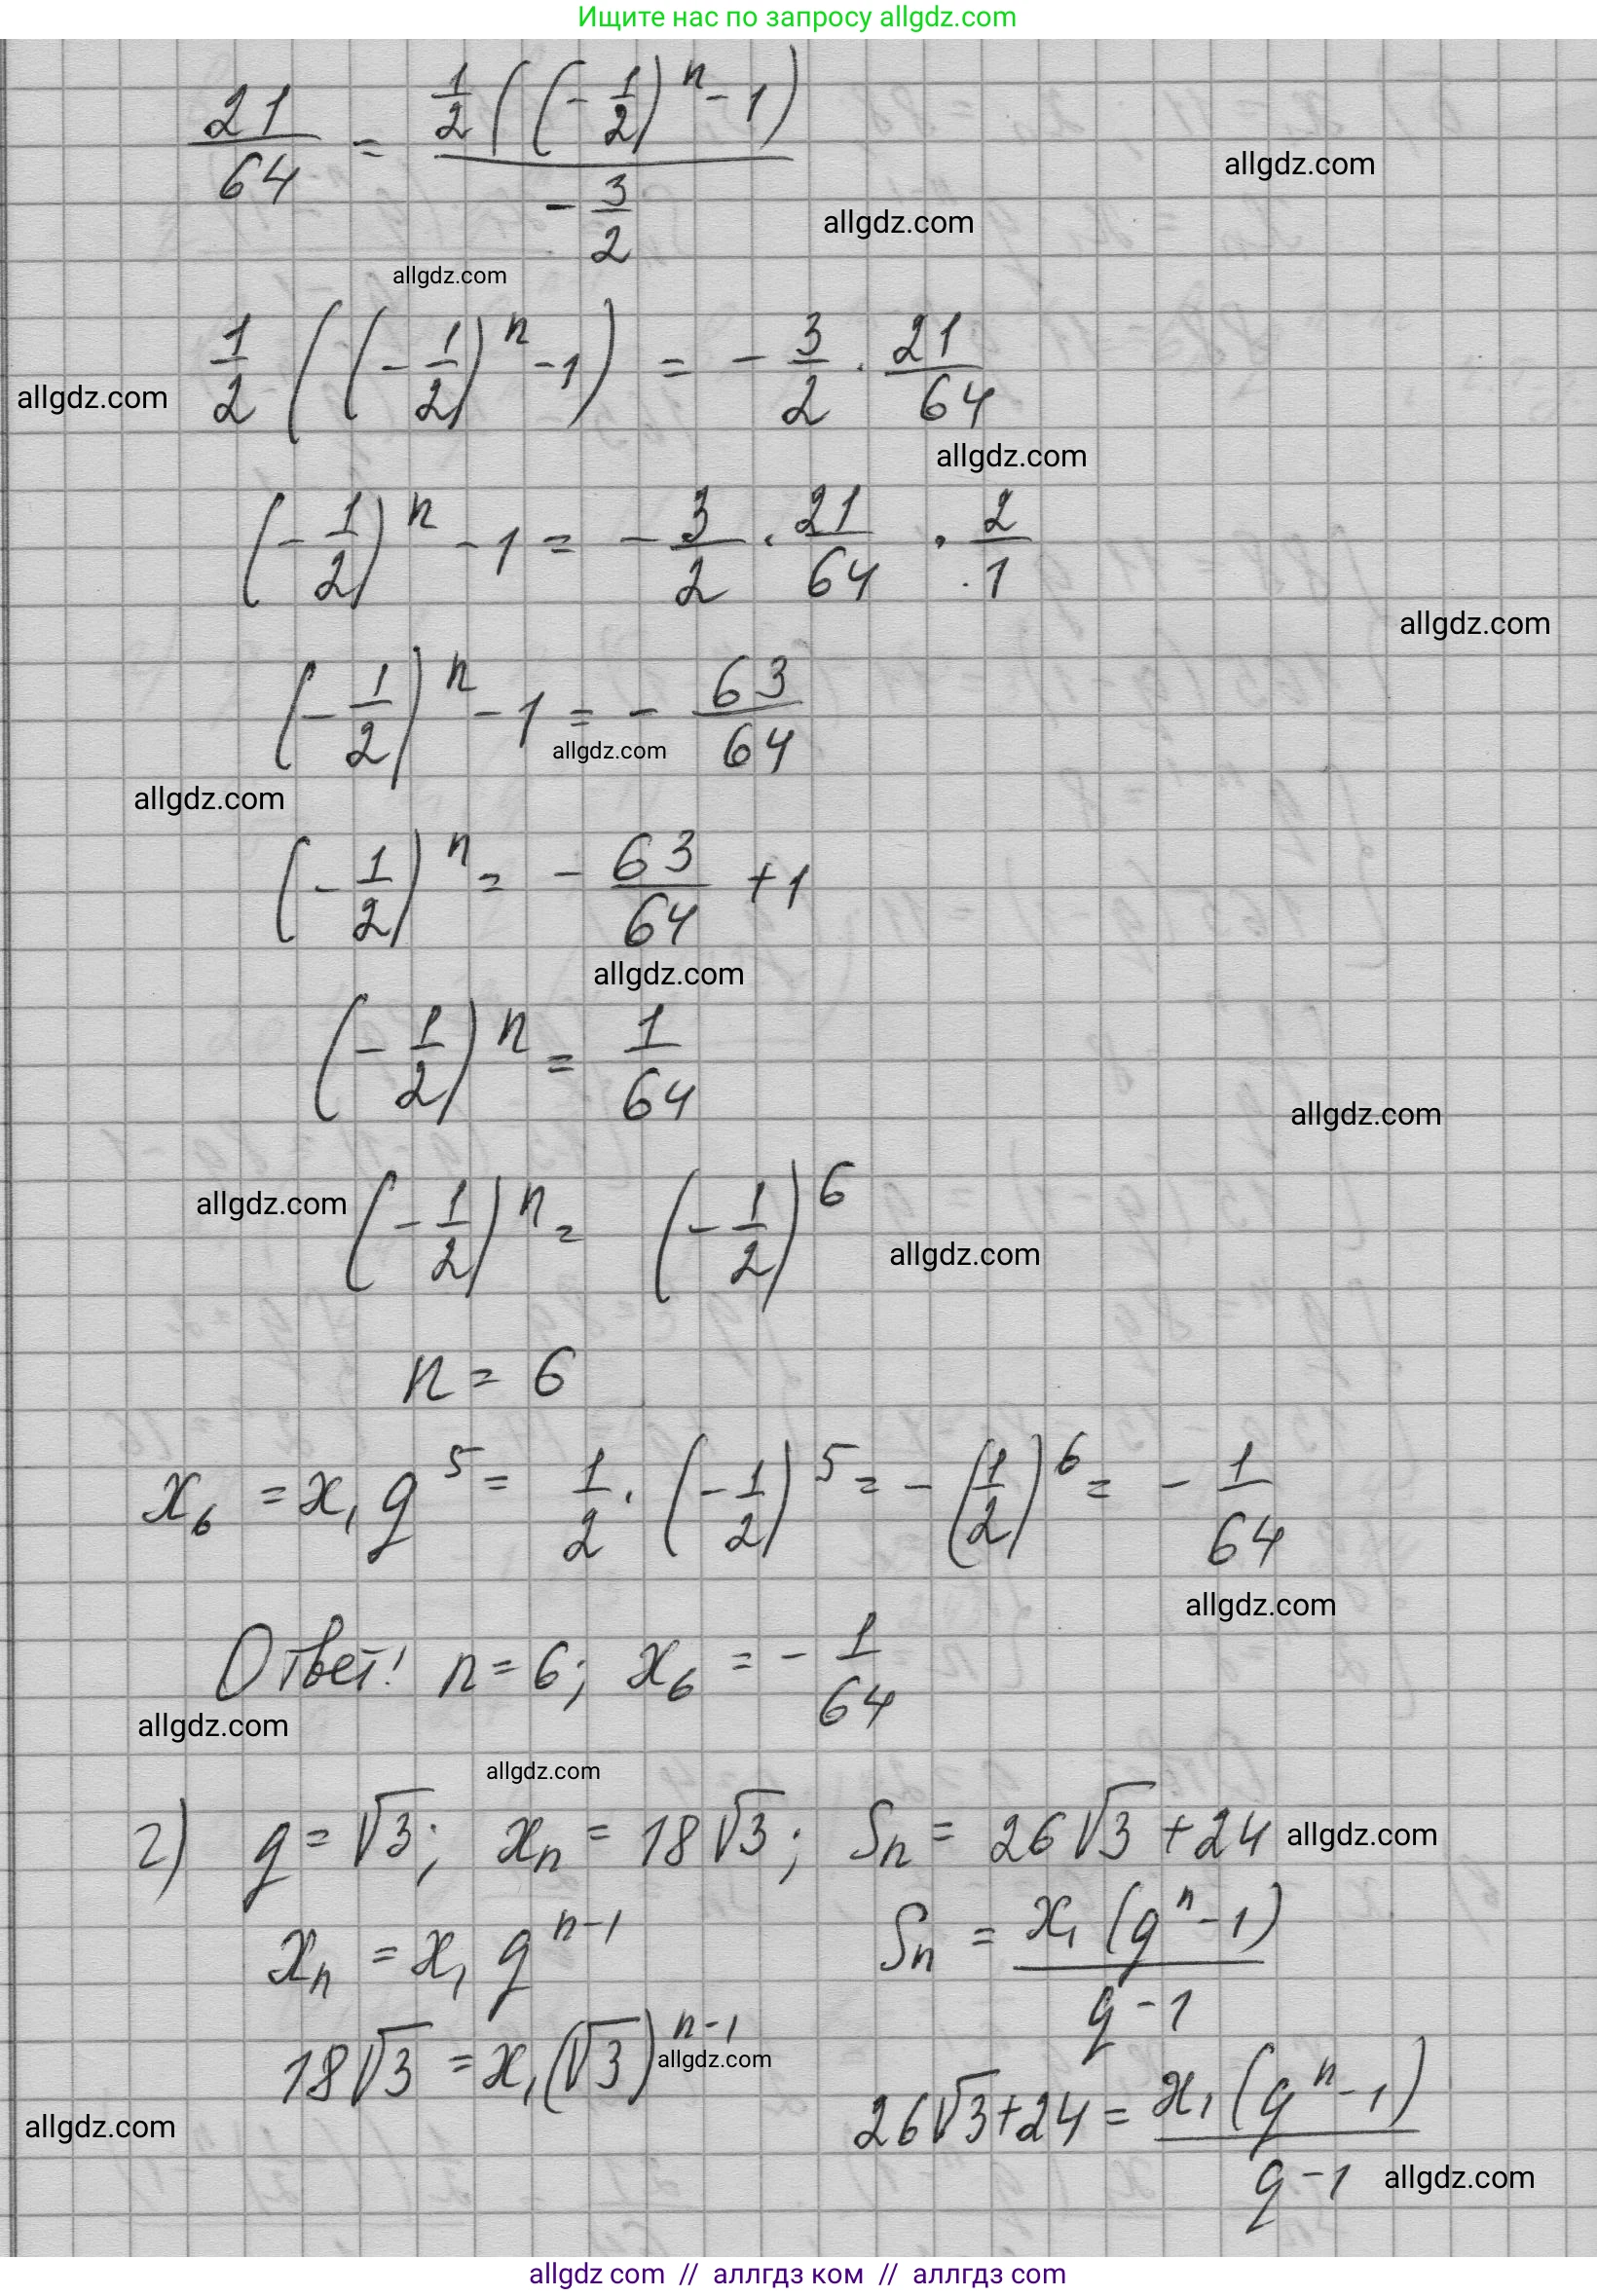 Ищите нас по запросу allgdz.com
21/64 = (1/2((-1/2)^n - 1))/(-3/2)
allgdz.com
allgdz.com
allgdz.com
1/2((-1/2)^n - 1) = -3/2 · 21/64
allgdz.com
allgdz.com
(-1/2)^n - 1 = -3/2 · 21/64 · 2/1
allgdz.com
(-1/2)^n - 1 = -63/64
allgdz.com
allgdz.com
(-1/2)^n = -63/64 + 1
allgdz.com
(-1/2)^n = 1/64
allgdz.com
allgdz.com
(-1/2)^n = (-1/2)^6
allgdz.com
n = 6
x₆ = x₁ q^5 = 1/2 · (-1/2)^5 = -(1/2)^6 = -1/64
allgdz.com
Ответ! n = 6; x₆ = -1/64
allgdz.com
allgdz.com
г) q = √3; xₙ = 18√3; Sₙ = 26√3 + 24
allgdz.com
xₙ = x₁ q^(n-1)
Sₙ = (x₁(q^n - 1))/(q - 1)
18√3 = x₁(√3)^(n-1)
allgdz.com
26√3 + 24 = (x₁(q^n - 1))/(q - 1)
allgdz.com
allgdz.com
allgdz com // аллгдз ком // аллгдз com